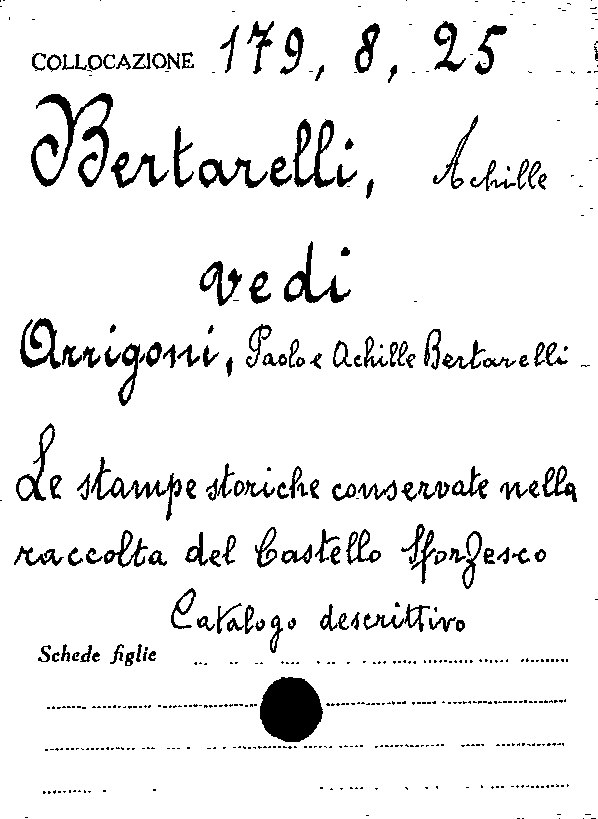 COLLOCAZIONE 179, 8, 25
Bertarelli, Achille
vedi
Arrigoni, Paolo e Achille Bertarelli
Le stampe storiche conservate nella
raccolta del Castello Sforzesco
Catalogo descrittivo
Schede figlie